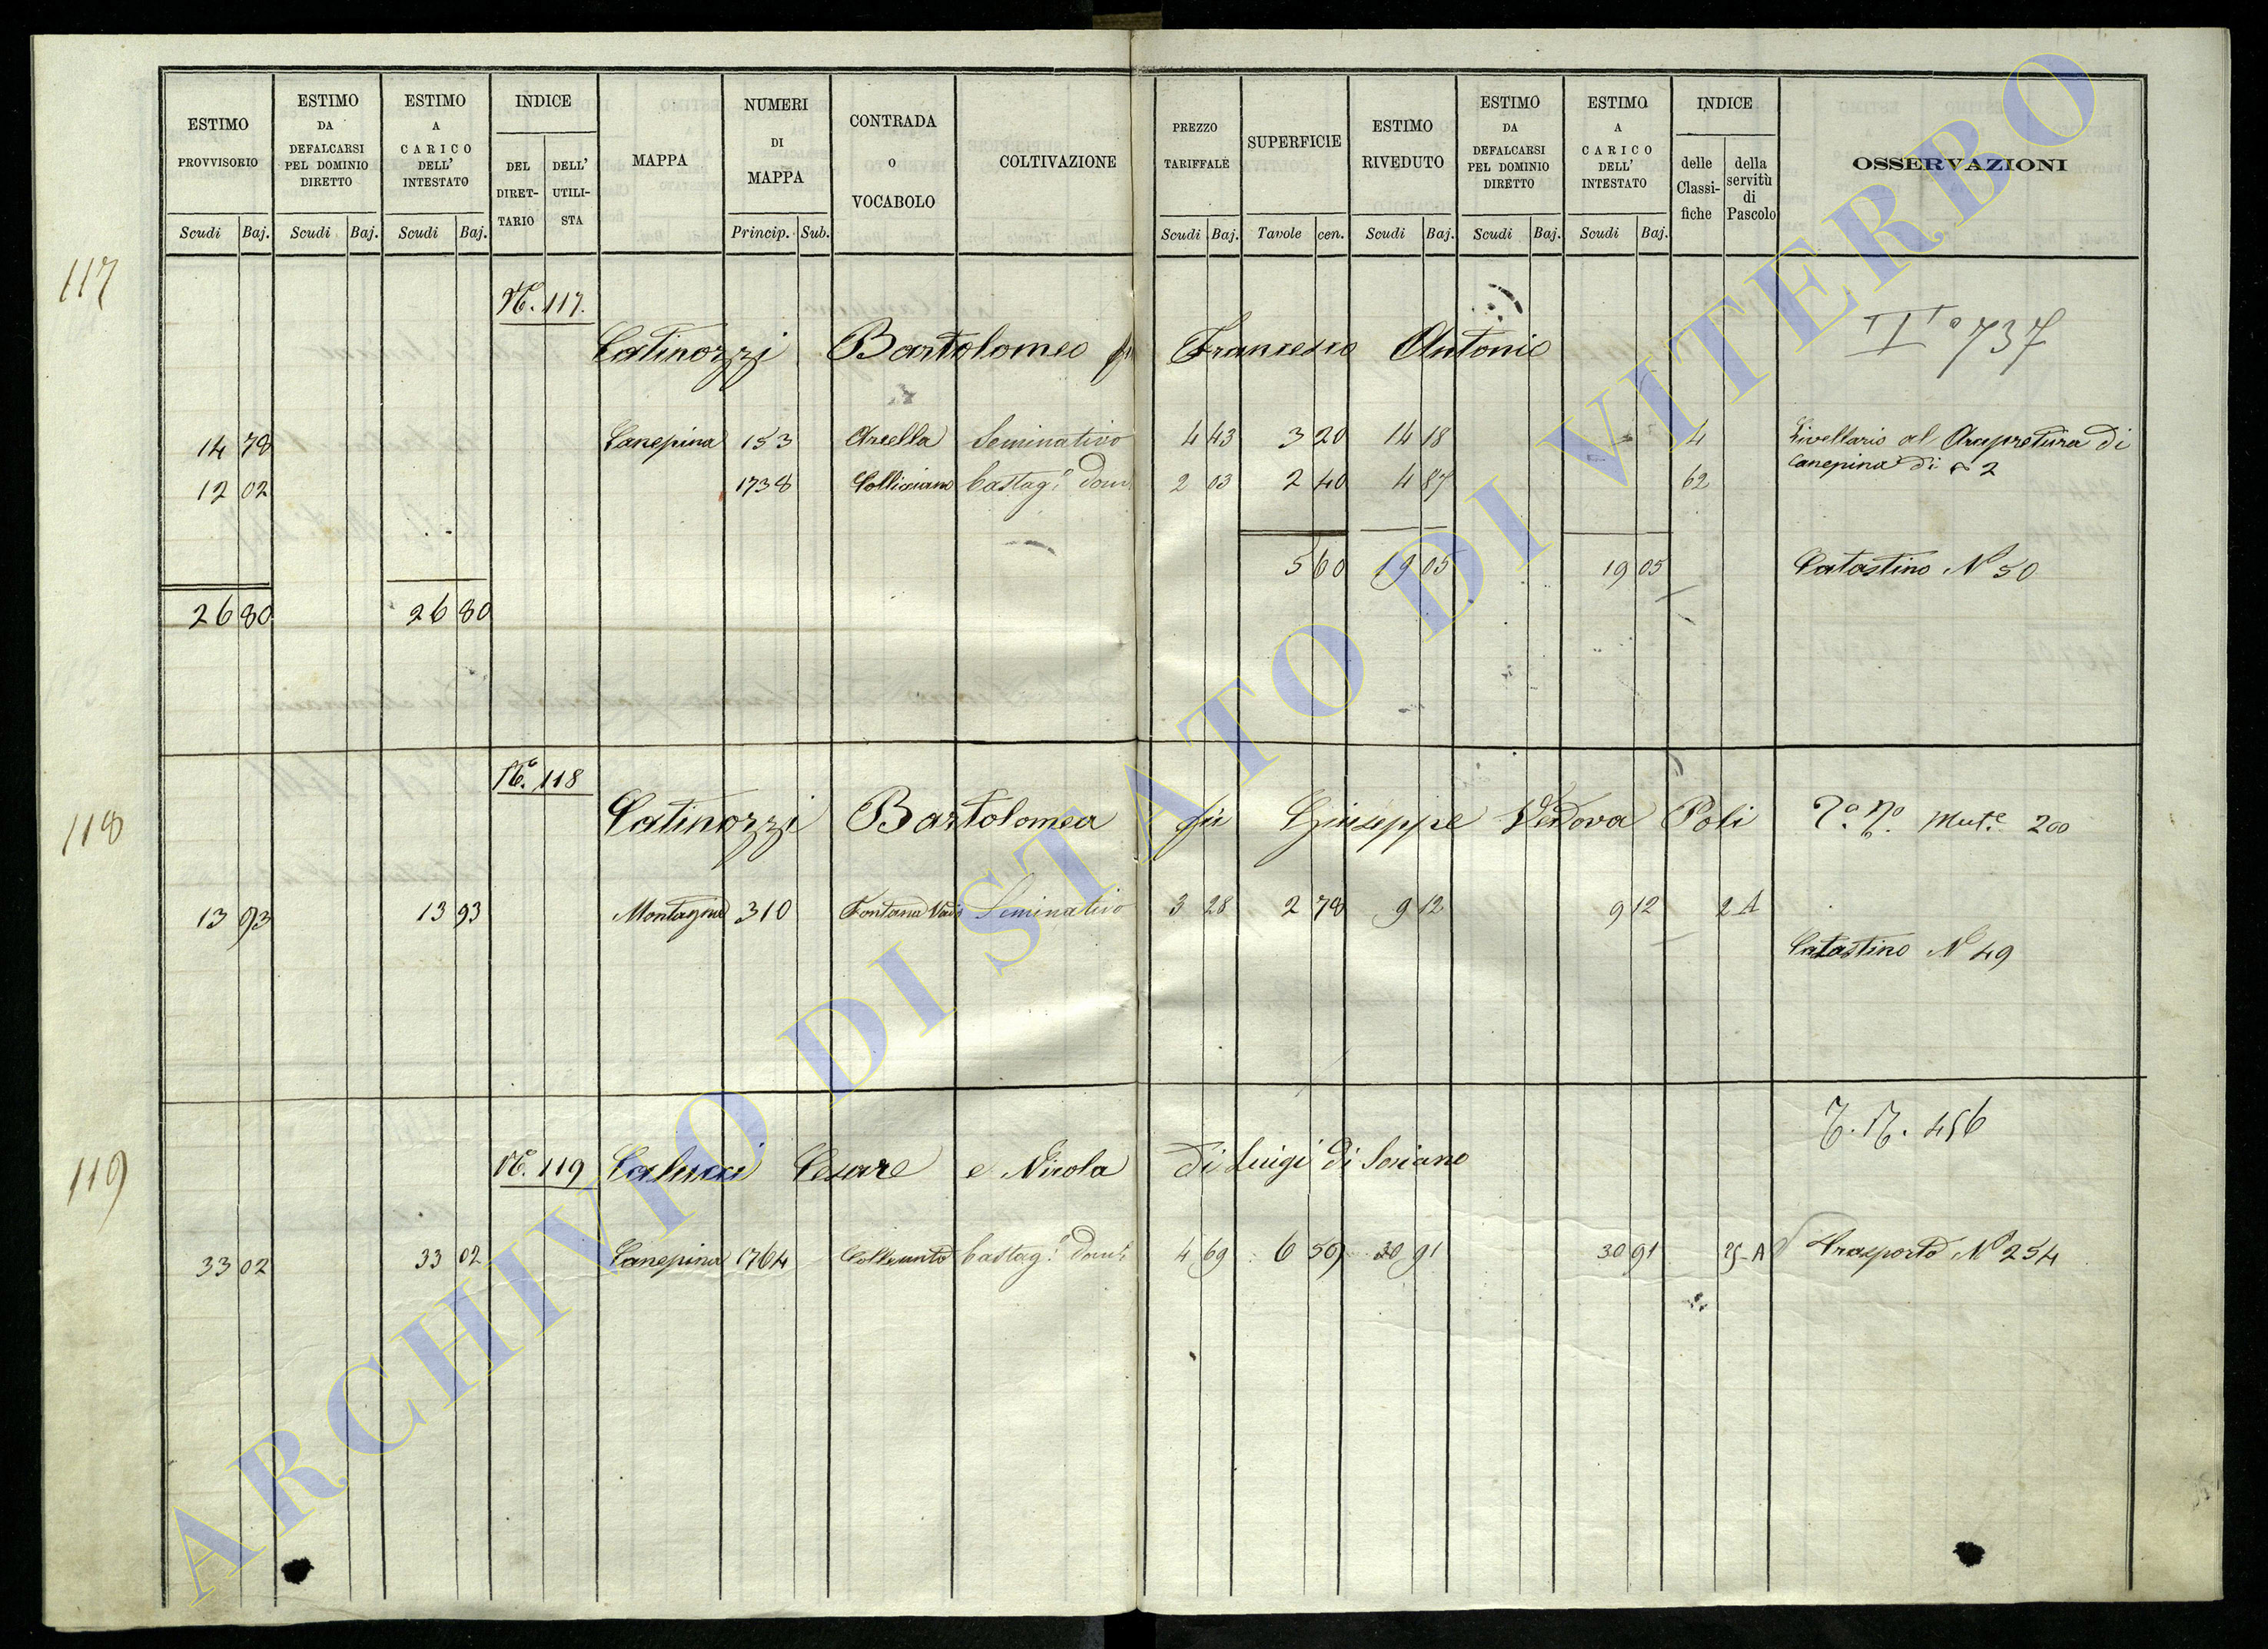 ESTIMO PROVVISORIO Scudi Baj.
ESTIMO DA DEFALCARSI PEL DOMINIO DIRETTO Scudi Baj.
ESTIMO A CARICO DELL' INTESTATO Scudi Baj.
INDICE DEL DIRETTARIO DELL' UTILISTA
MAPPA
NUMERI DI MAPPA Princip. Sub.
CONTRADA O VOCABOLO
COLTIVAZIONE
PREZZO TARIFFALE Scudi Baj.
SUPERFICIE Tavole cen.
ESTIMO RIVEDUTO Scudi Baj.
ESTIMO DA DEFALCARSI PEL DOMINIO DIRETTO Scudi Baj.
ESTIMO A CARICO DELL' INTESTATO Scudi Baj.
INDICE delle Classifiche della servitù di Pascolo
OSSERVAZIONI
117 N.º 117.
Catinozzi Bartolomeo fu Francesco Antonio 737
14 78 Canepina 153 Arcella Seminativo 4 43 3 20 14 18 4 Livellario al Arcipretura di
Canepina di 2
12 02 1738 Castag.º Dom 2 03 2 40 4 87 62
5 60 19 05 19 05 Catastino Nº 50
26 80 26 80
118 N.º 118
Catinozzi Bartolomea fu Giuseppe Vedova Poli Mut.e 200
13 93 13 93 Montagna 310 Fontana Seminativo 3 28 2 78 9 12 9 12 2 A
Catastino Nº 49
456
119 N.º 119 Calucci Cesare e Nicola di Luigi di Soriano
33 02 33 02 Canepina 1764 Castag.º Dom 4 69 6 59 30 91 30 91 25-A Trasporto Nº 254
ARCHIVIO DI STATO DI VITERBO